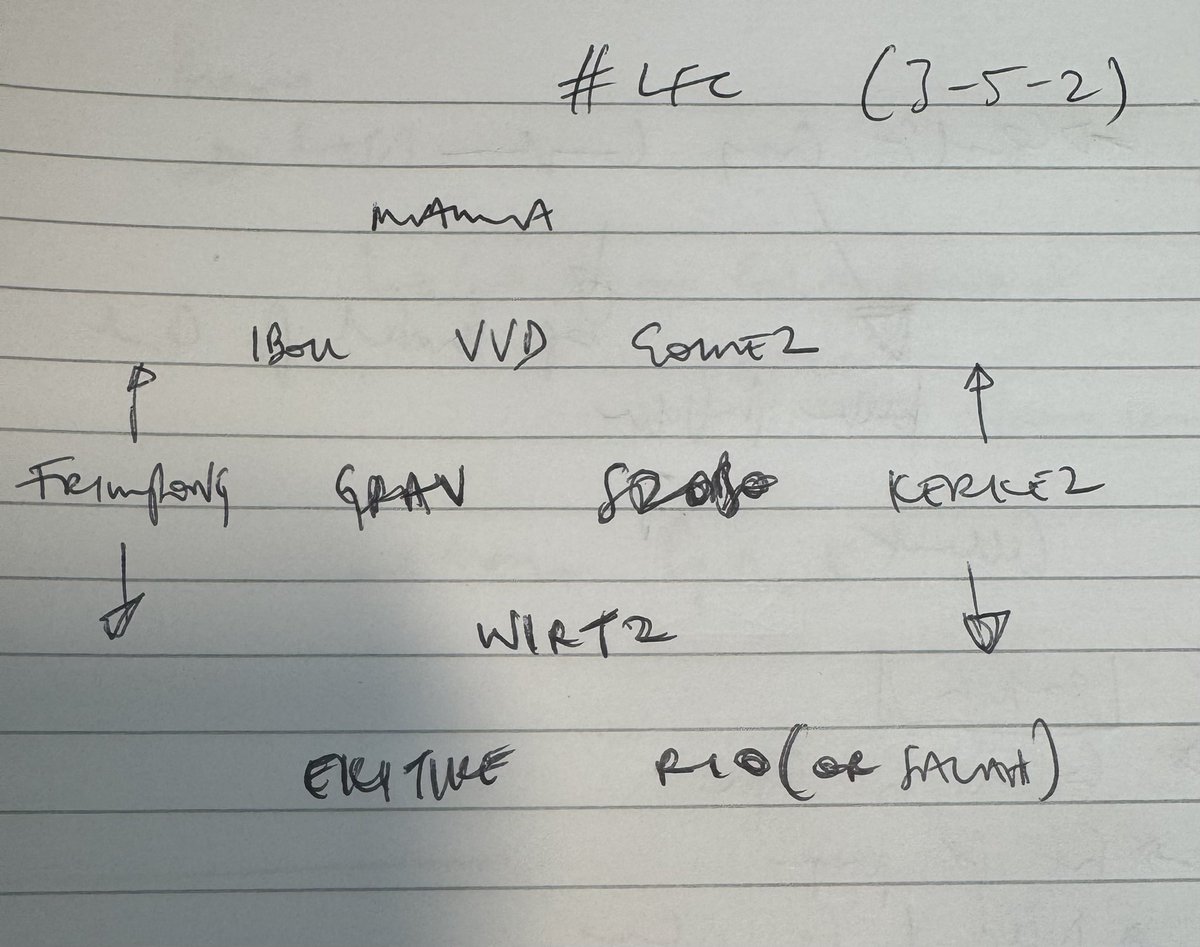 #LFC (3-5-2)
MAMA
IBOU VVD GOMEZ
FRIMPONG GRAV SZOBO KERKEZ
WIRTZ
EKITIKE RIO (OR SALAH)